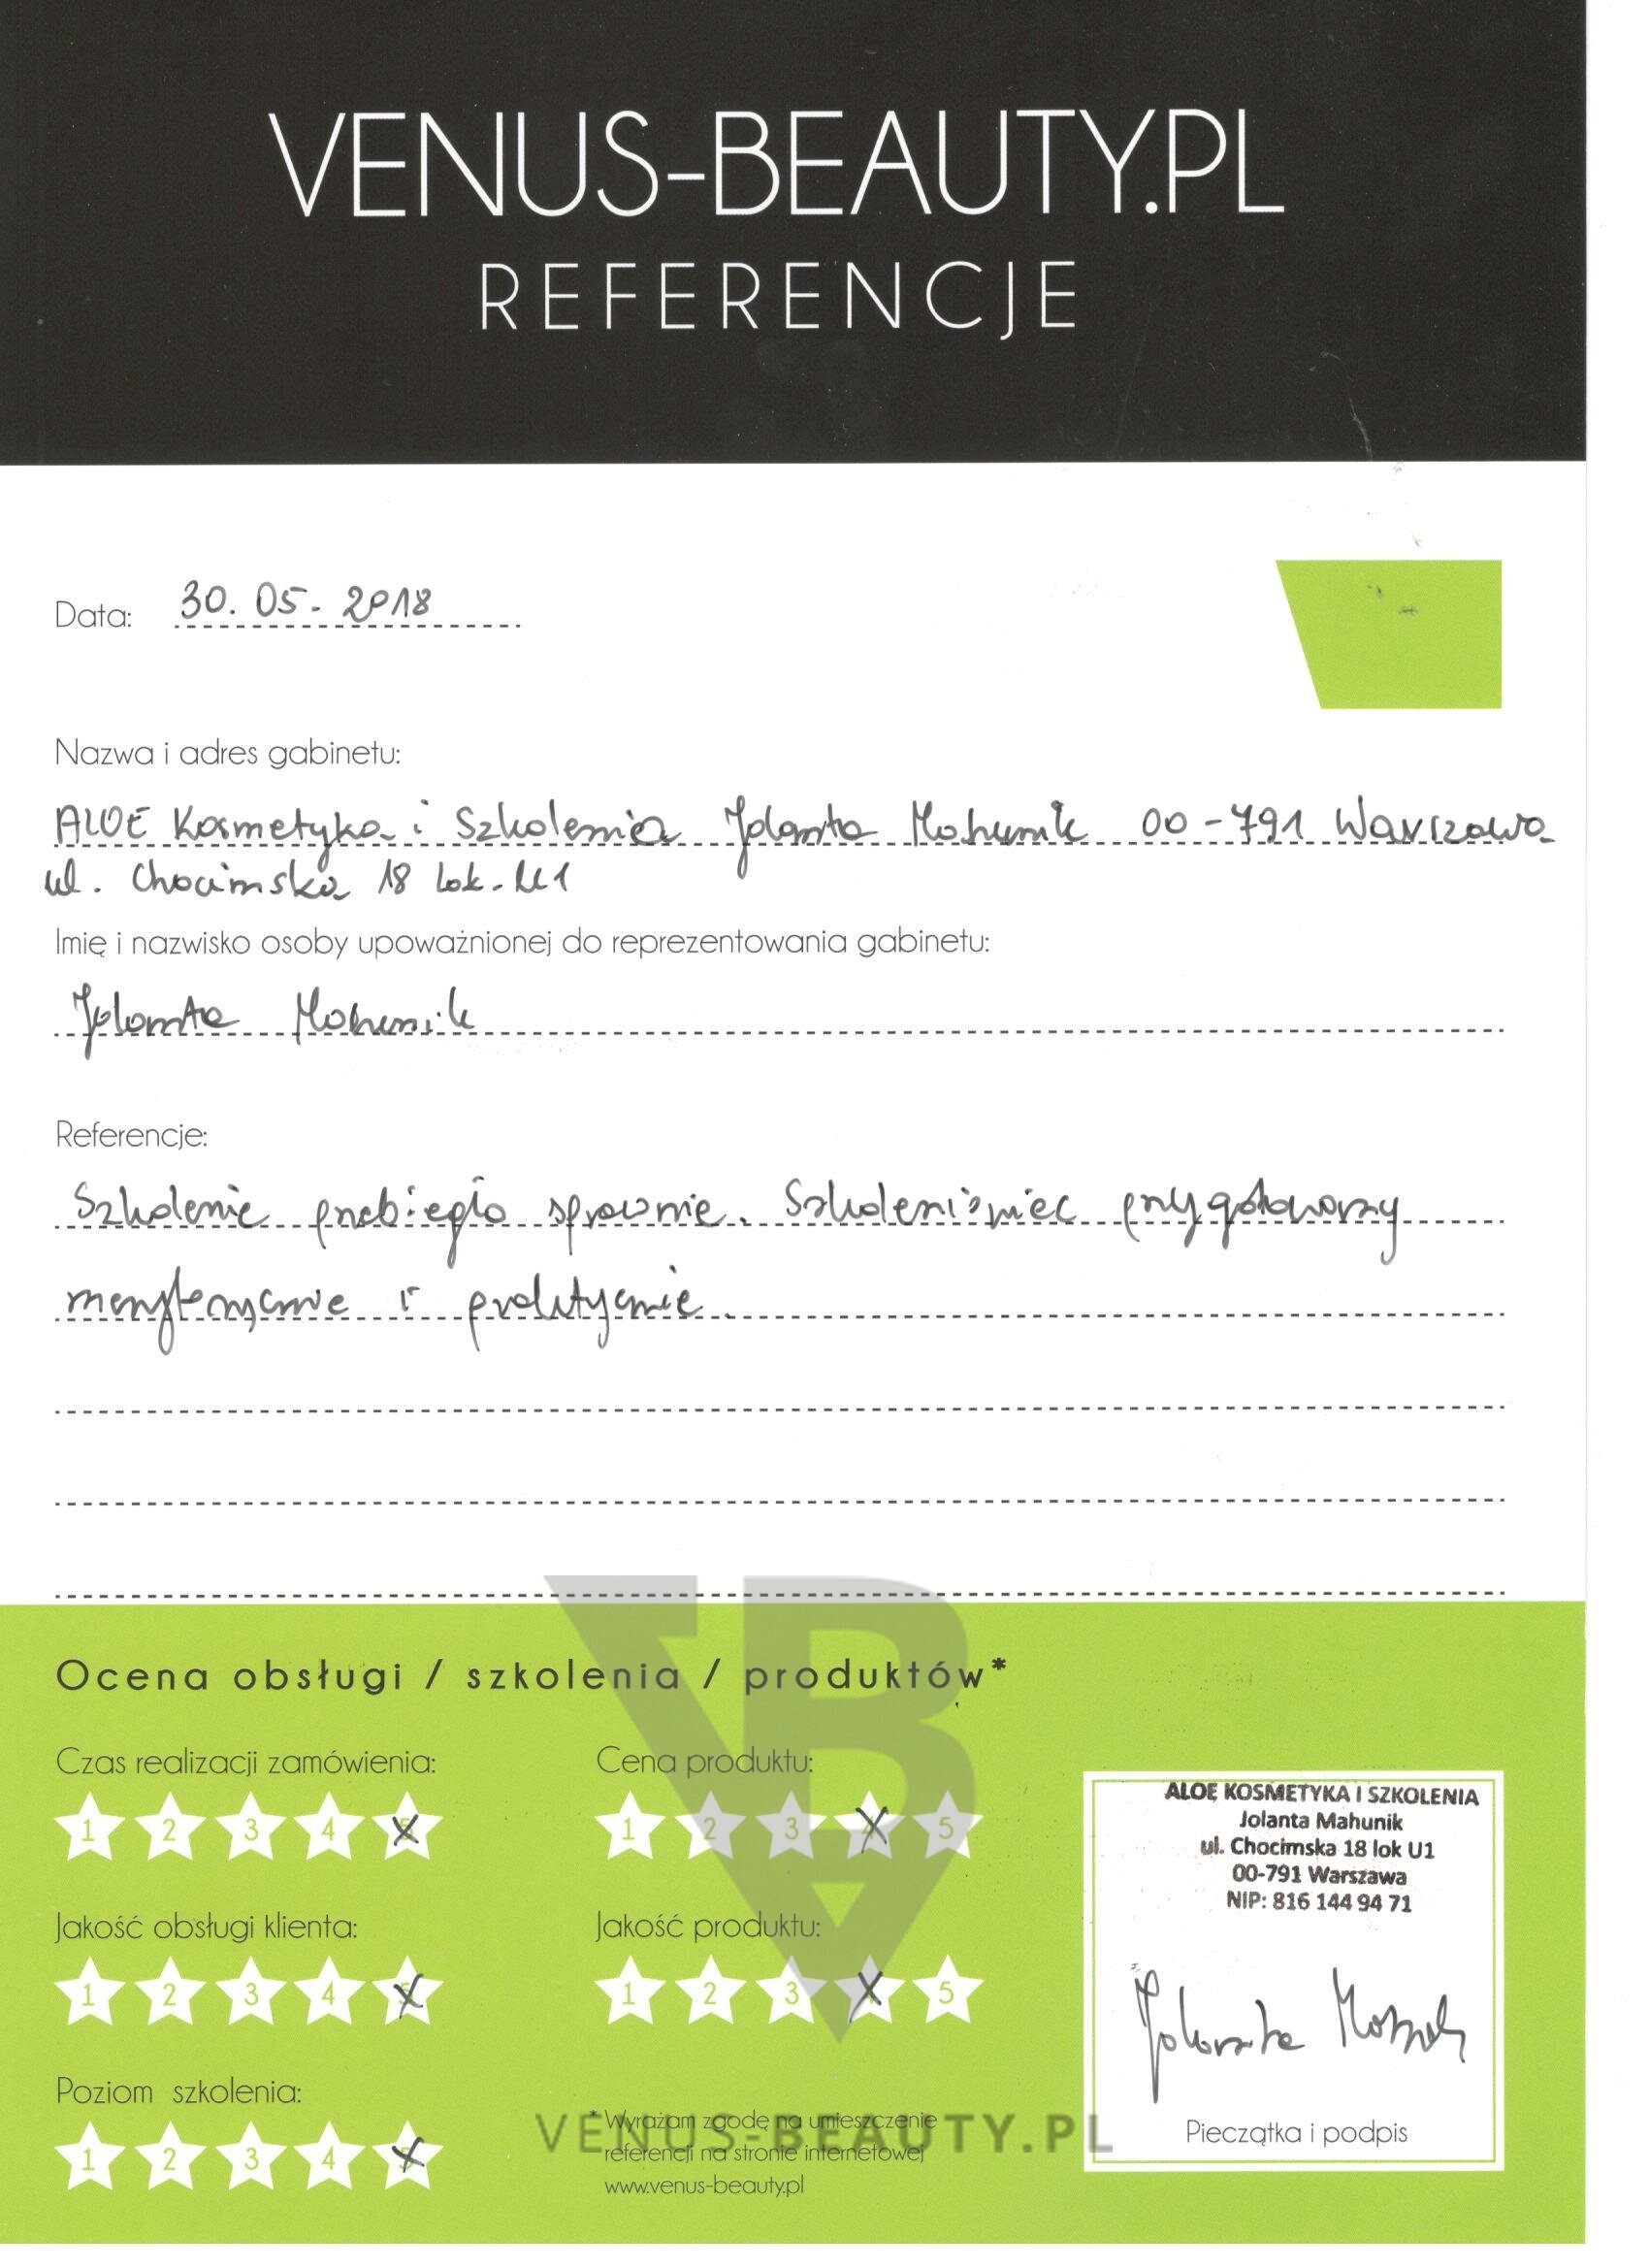 VENUS-BEAUTY.PL
REFERENCJE
Data: 30.05.2018
Nazwa i adres gabinetu:
ALOE Kosmetyka i Szkolenia Jolanta Mahunik 00-791 Warszawa
ul. Chocimska 18 lok. U1
Imię i nazwisko osoby upoważnionej do reprezentowania gabinetu:
Jolanta Mahunik
Referencje:
Szkolenie przebiegło sprawnie. Szkoleniowiec przygotowany
merytorycznie i praktycznie.
Ocena obsługi / szkolenia / produktów*
Czas realizacji zamówienia: Cena produktu:
1 2 3 4 5 1 2 3 4 5
Jakość obsługi klienta: Jakość produktu:
1 2 3 4 5 1 2 3 4 5
Poziom szkolenia:
1 2 3 4 5
* Wyrażam zgodę na umieszczenie
referencji na stronie internetowej
www.venus-beauty.pl
VENUS-BEAUTY.PL
ALOE KOSMETYKA I SZKOLENIA
Jolanta Mahunik
ul. Chocimska 18 lok U1
00-791 Warszawa
NIP: 816 144 94 71
Jolanta Mahunik
Pieczątka i podpis